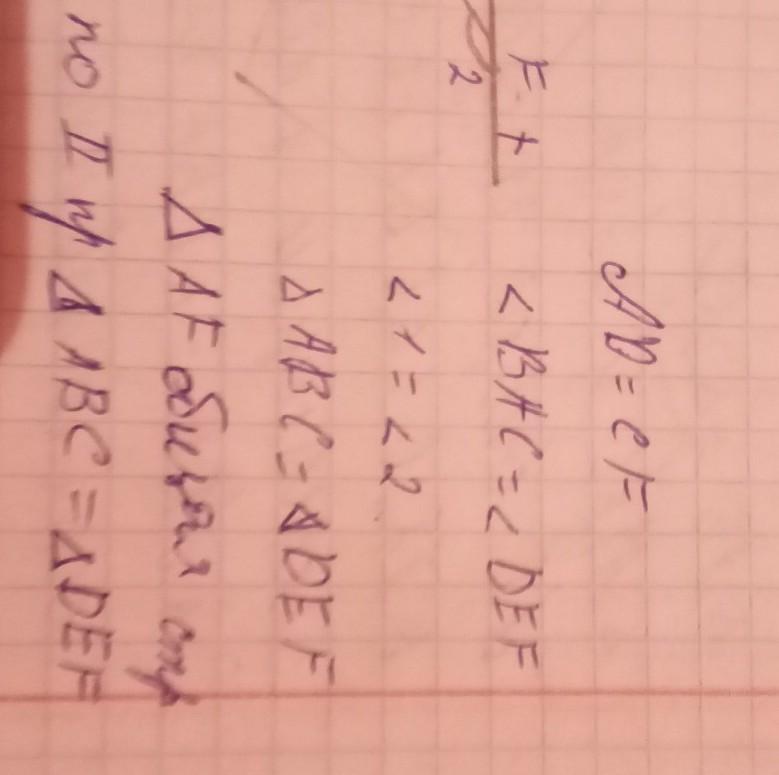 F +
2
AD = CF
< BAC = < DEF
< 1 = < 2
Δ ABC = Δ DEF
Δ AF общая стр
по II пр Δ ABC = Δ DEF